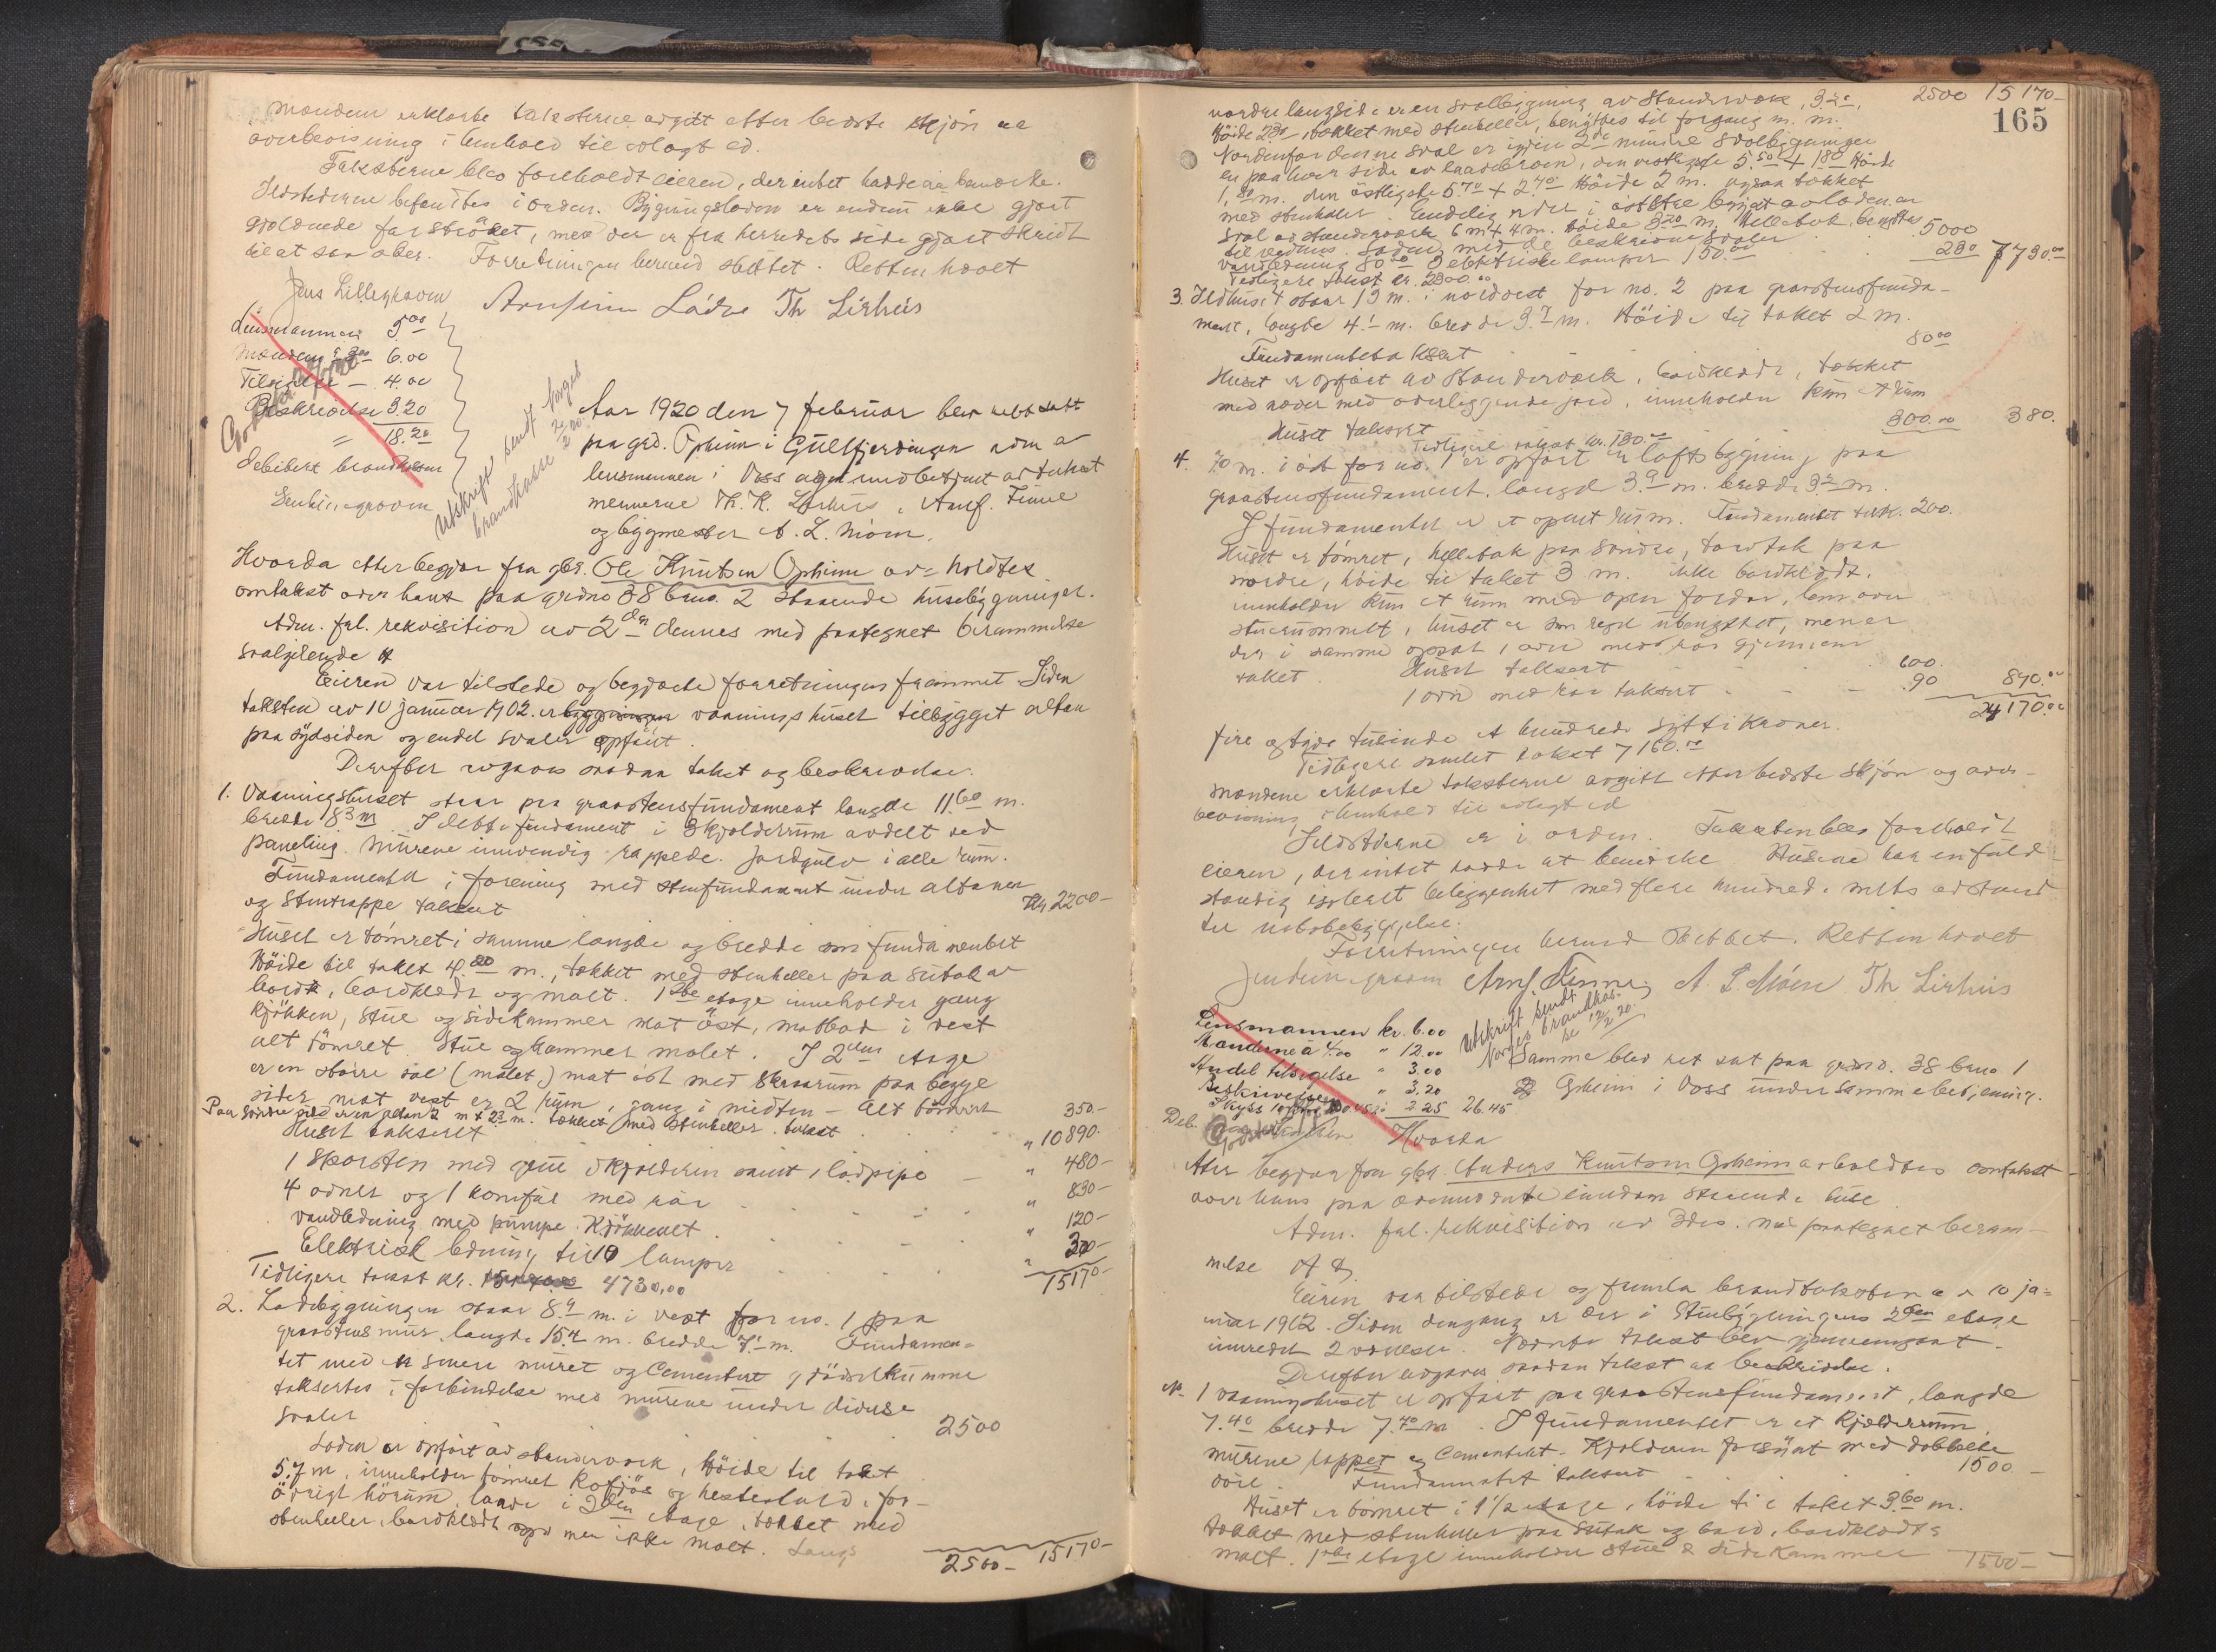 mændene erklærte taksterne avgit efter bedste skjøn aa
overbevisning i henhold til avlagt ed.
Taksterne blev foreholdt eieren, der intet hadde at bemerke.
Ildstederne befandtes i orden. Bygningsloven er endnu ikke gjort
gjældende for strøket, men der er fra herredets side gjort skridt
til at saa sker. Forretningen hermed sluttet. Retten hævet
Jens Lillegraven Th Lirhus
Lensmannen 5.00
Mændene à 3.00 6.00
Tilsigelse — 4.00
Beskrivelse 3.20
" 18.20
Debiteret brandkassen
Utskrift sendt Norges
brandkasse
Aar 1920 den 7 februar blev rett satt
paa grd. Opheim i Gullfjerdingen adm av
lensmannen i Voss og med betjent av takst
mennerne Th. K. Lirhus, Arnf. Finne
og bygmester A. L. Møen.
Hvorda efter begjær fra gbr. Ole Knutsen Opheim av= holdtes
omtakst over hans paa grdno 38 brno. 2 staaende husebygninger.
Adm. frl. rekvisition av 2den dennes med paategnet berammelse
saalydende A
Eieren var tilstede og begjærte forretningen fremmet. Siden
taksten av 10 januar 1902 er vaaningshuset tilbygget altan
paa sydsiden og endel svaler opført.
Derefter avgaves saadan takst og beskrivelse.
1. Vaaningshuset staar paa graastensfundament længde 11.60 m.
bredde 8 3 m I dette fundament i 3 kjælderrum avdelt ved
paneling. Murene indvendig rappede. Jordgulv i alle rum.
Fundamentet i forening med stenfundament under altanen
og stentrappe taksert Kr 2200—
Huset er tømret i samme længde og bredde som fundamentet
Høide til taket 4.20 m., tækket med stenheller paa sutak av
bord, bordklædt og malt. 1ste etage inneholder gang
Kjøkken, stue og sidekammer mot øst, matbod i vest
alt tømret. Stue og kammer malet. I 2den etage
er en større sal (malet) mot øst med skraarum paa begge
sider, mot vest er 2 rum, gang i midten — Alt
Paa søndre side er en altan 2 m x 2 3 m. tækket med stenheller. takst 350.—
Huset takseret " 10890.
1 Skorsten med grue i kjælderen samt 1 lødpipe — " 480—
4 ovner og 1 komfur med rør " 830—
Vandledning med pumpe. Kjøkkenet " 120—
Elektrisk ledning til 10 lamper " 300—
Tidligere takst kr. 4730,00 15170—
2. Ladebygningen staar 8.4 m. i vest for no. 1 paa
graastens mur, længde 15.4 m. bredde 7.1 m. Fundamen=
tet med en smere muret og Cementert gjødselkumme
taksertes i forbindelse med murene under diverse
svaler 2500
Laden er opført av stenderværk, høide til taket
5.7 m, inneholder tømret kofjøs og hestestald, for—
øvrigt hørum, laave i 2den etage, tækket med
stenheller, bordklædt men ikke malt. Langs
2500— 15170—
2500 15170—
165
nordre langside er en svalbygning av stenderværk, 3
Høide 2 80, tækket med stenheller, benyttes til forgang m. m.
Nordenfor denne sval er igjen 2de mindre svalbygninger
en paa hver side av laavebroen, den vestligste 5.50 x 180 Høide
1,80 m. den østligste 5 70 x 2.70 Høide 2 m. ogsaa tækket
med stenheller. Endelig er der i østre
sval av stenderværk 6 m x 4 m. høide 3 20 m, Helletak, benyttes
Laden med de beskrevne svaler 5000
Vandledning 80.00 3 elektriske lamper 150.00 230 7730.00
Tidligere takst kr. 2300.00
3. Ildhuset staar 13 m. i nordvest for no. 2 paa graastensfunda—
ment, længde 4.1 m. bredde 3.7 m. Høide til taket 2 m.
Fundamentet taksert 80.00
Huset er opført av stenderværk, bordklædt, tækket
med næver med overliggende jord, inneholder kun et rum
Huset taksert 300.00 380.
Tidligere takst kr. 130.00
4. 70 m. i øst for no. 1 er opført en loftsbygning paa
graastensfundament, længde 3.9 m. bredde 3.2 m.
I fundamentet er et opent rum. Fundamentet takst. 200.
Huset er tømret, helletak paa søndre, torvtak paa
nordre, høide til taket 3 m. ikke bordklædt.
inneholder kun et rum med open fordør, lem over
stuerummet, huset er som regel ubenyttet, men er
der i samme opsat 1 ovn med rør gjennem
taket. Huset taksert 600.
1 ovn med rør taksert — 90 890.00
24170.00
fire og tyve tusinde et hundrede sytti kroner.
Tidligere samlet takst 7160.00
Mændene erklærte taksterne avgitt etter bedste skjøn og over—
bevisning i henhold til avlagt ed
Ildstederne er i orden. Taksten blev foreholdt
eieren, der intet hadde at bemerke. Husene har en fuld—
stændig isoleret beliggenhet med flere hundrede meters avstand
til nabobebyggelse.
Forretningen hermed sluttet. Retten hævet
Arnf. Finne, A. L. Møen Th Lirhus
Lensmannen kr. 6.00
Mændene à 4.00 " 12.00
Andel tilsigelse " 3.00
Beskrivelsen " 3.20
Skyss 2.25 26.45
Utskrift sendt
Norges brandkas-
se 12/2 20.
Samme blev ret sat paa grdno. 38 brno 1
Opheim i Voss under samme betjening.
Hvorda
etter begjær fra gbr. Anders Knutsen Opheim avholdtes omtakst
over hans paa ovennevnte eiendom staaende huse
Adm. frl. rekvisition av 3ds. med paategnet beram—
melse A
Eieren var tilstede og fremla brandtaksten av 10 ja=
nuar 1902. Siden dengang er der i Stuebygningens 2den etage
innredet 2 værelser. Nævnte takst blev gjennemgaat.
Derefter avgaves saadan takst aa beskrivelse.
N. 1 Vaaningshuset er opført paa graastensfundament, længde
7.40 bredde 7.40 m. I fundamentet er et kjælderrum,
murene rappet og Cementert. Kjælderen forsynt med dobbelte
døre. Fundamentet taksert 1500.—
Huset er tømret i 1 1/2 etage, høide til taket 3 60 m.
tækket med stenheller paa sutak og bord, bordklædt &
malt. 1ste etage inneholder stue & sidekammer 1500—